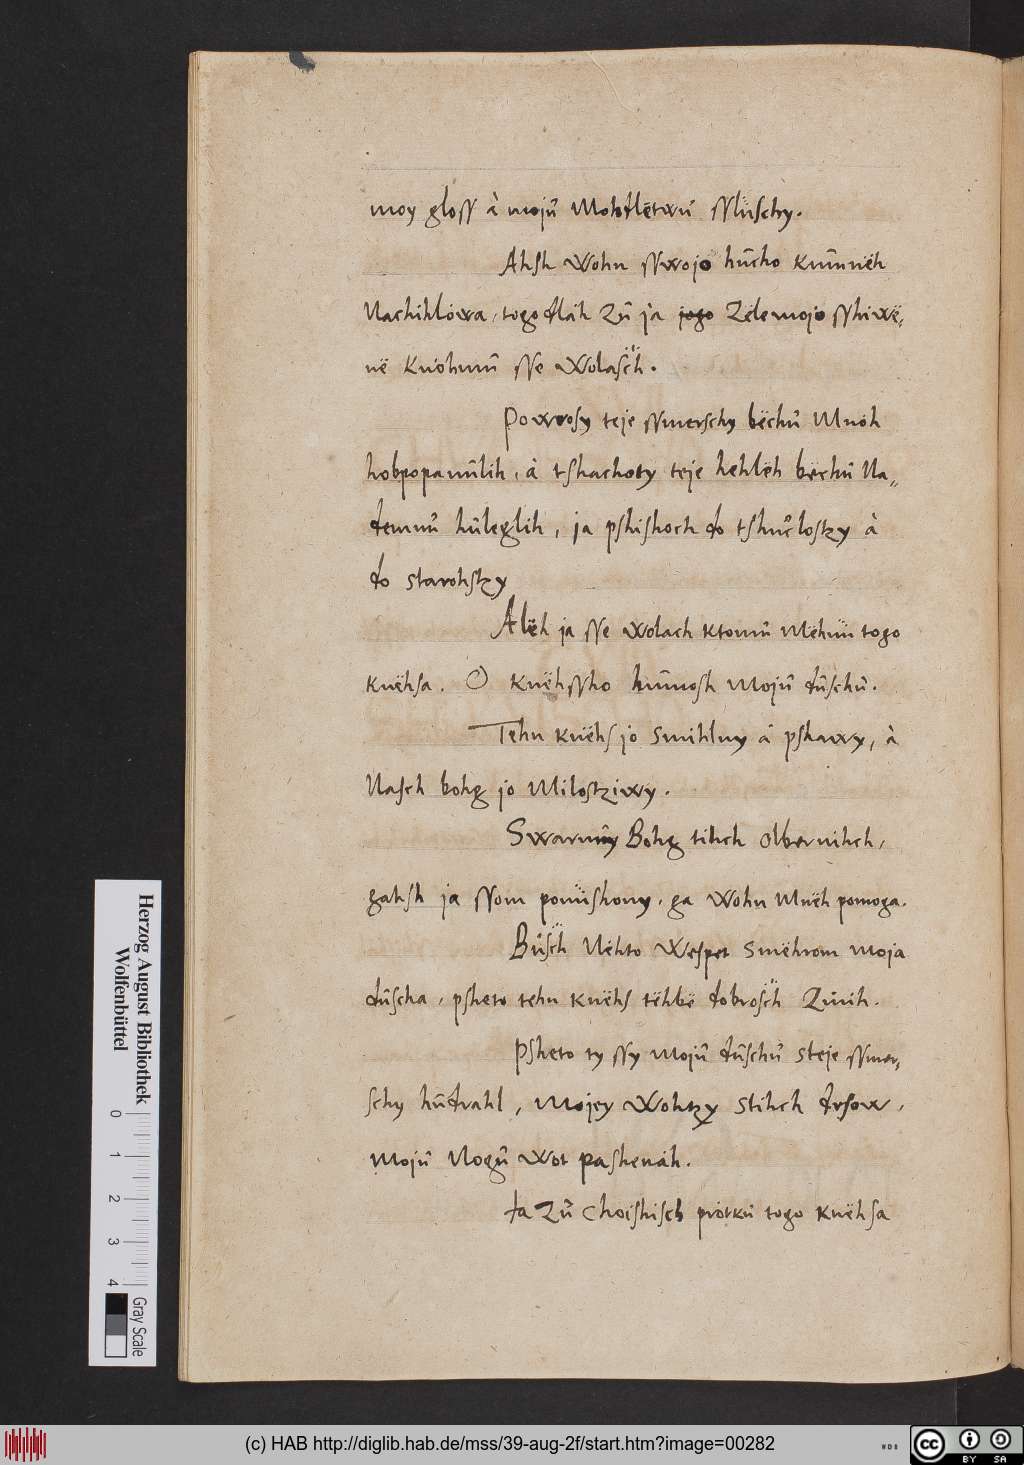 moy gloss à mojū Mohdlëtwū sslüschy.
Ahsh Wohn sswojo hūcho Kūmnëh
Nachihlówa, togodláh Zū já jogo Zélemojo sshiwë,,
në Knóhmū sse Wolasch.
Powrosy teje ssmerschy bëchū Mnöh
hobpopanūlih, à tshachoty teje hehlëh bëchū Na,,
demnū hūleglih, ja pshishoch do tshūclostzy à
do starohstzy
Alëh ja sse wolach ktomū Mëhnü togo
Knëhsa. O knëhssho hūmosh Mojū dūschū.
Tehn Knëhs jo Smihlny á pshawy, à
Nasch bohg jo Milostziwy.
Swarnüy Bohg tihch Olbernihch,
gahsh ja ssom ponüshony, ga Wohn Mnëh pomoga.
Büsch Nëhto Wespet Smëhrom Moja
dūscha, psheto tehn Knëhs tëhbë dobrosch Zinih.
Psheto ty ssy Mojū dūschū steje ssmer,,
schy hūdrahl, Mojey Wohtzy Stihch drsow,
Mojū Nogū Wot pashenáh.
Ja Zū Choishisch prötkū togo Knëhsa
Herzog August Bibliothek
Wolfenbüttel
0 1 2 3 4
Gray Scale
(c) HAB http://diglib.hab.de/mss/39-aug-2f/start.htm?image=00282
WDB
cc BY SA